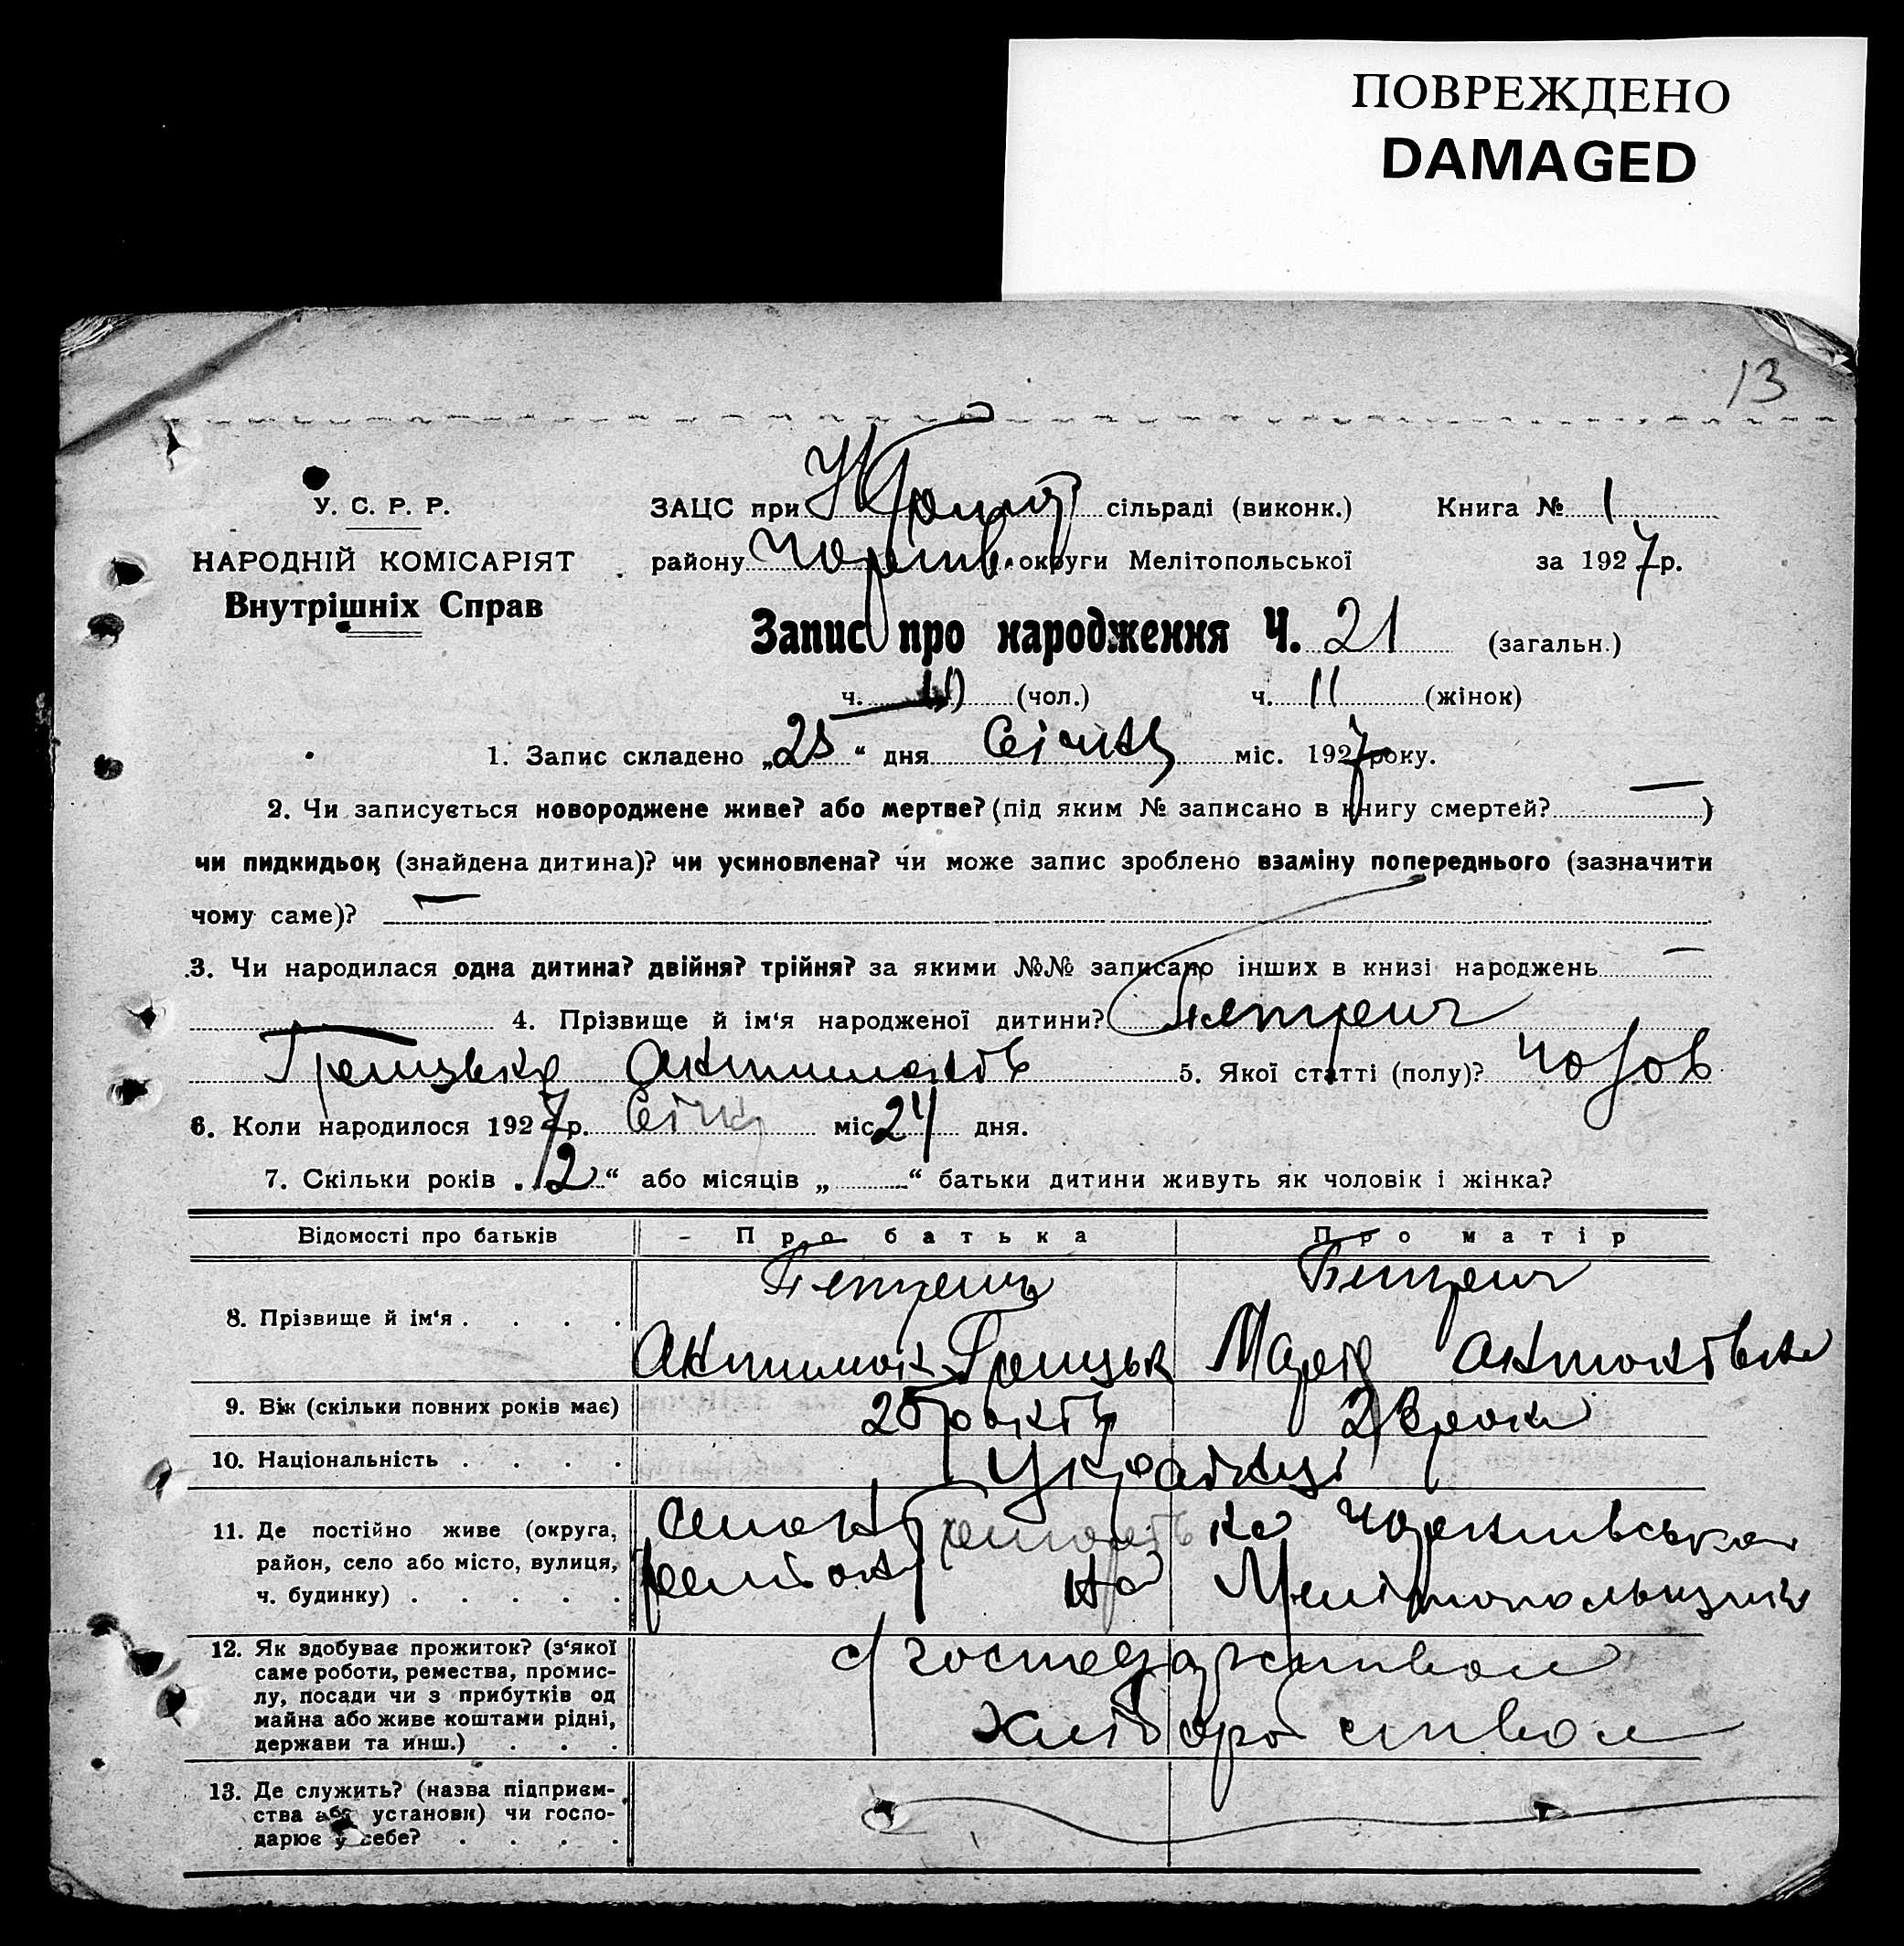 ПОВРЕЖДЕНО
DAMAGED
13
У. С. Р. Р.
НАРОДНІЙ КОМІСАРІЯТ
Внутрішніх Справ
ЗАЦС при сільраді (виконк.)
Книга № 1
району округи Мелітопольської
за 1927 р.
Запис про народження Ч. 21 (загальн.)
ч. 10 (чол.) ч. 11 (жінок)
1. Запис складено „25“ дня Січня міс. 1927 року.
2. Чи записується новороджене живе? або мертве? (під яким № записано в книгу смертей? — )
чи пидкидьок (знайдена дитина)? чи усиновлена? чи може запис зроблено взаміну попереднього (зазначити
чому саме)? —
3. Чи народилася одна дитина? двійня? трійня? за якими №№ записано інших в книзі народжень —
4. Прізвище й ім‘я народженої дитини?
5. Якої статті (полу)? чолов
6. Коли народилося 1927 р. Січня міс. 24 дня.
7. Скільки років „2“ або місяців „ “ батьки дитини живуть як чоловік і жінка?
Відомості про батьків
Про батька
Про матір
8. Прізвище й ім‘я
Марія
9. Вік (скільки повних років має)
25 років
10. Національність
Українці
11. Де постійно живе (округа,
район, село або місто, вулиця,
ч. будинку)
на
на Мелітопольщині
12. Як здобуває прожиток? (з‘якої
саме роботи, ремества, промис-
лу, посади чи з прибутків од
майна або живе коштами рідні,
держави та инш.)
с/господарством
хліборобством
13. Де служить? (назва підприєм-
ства або установи) чи госпо-
дарює у себе?